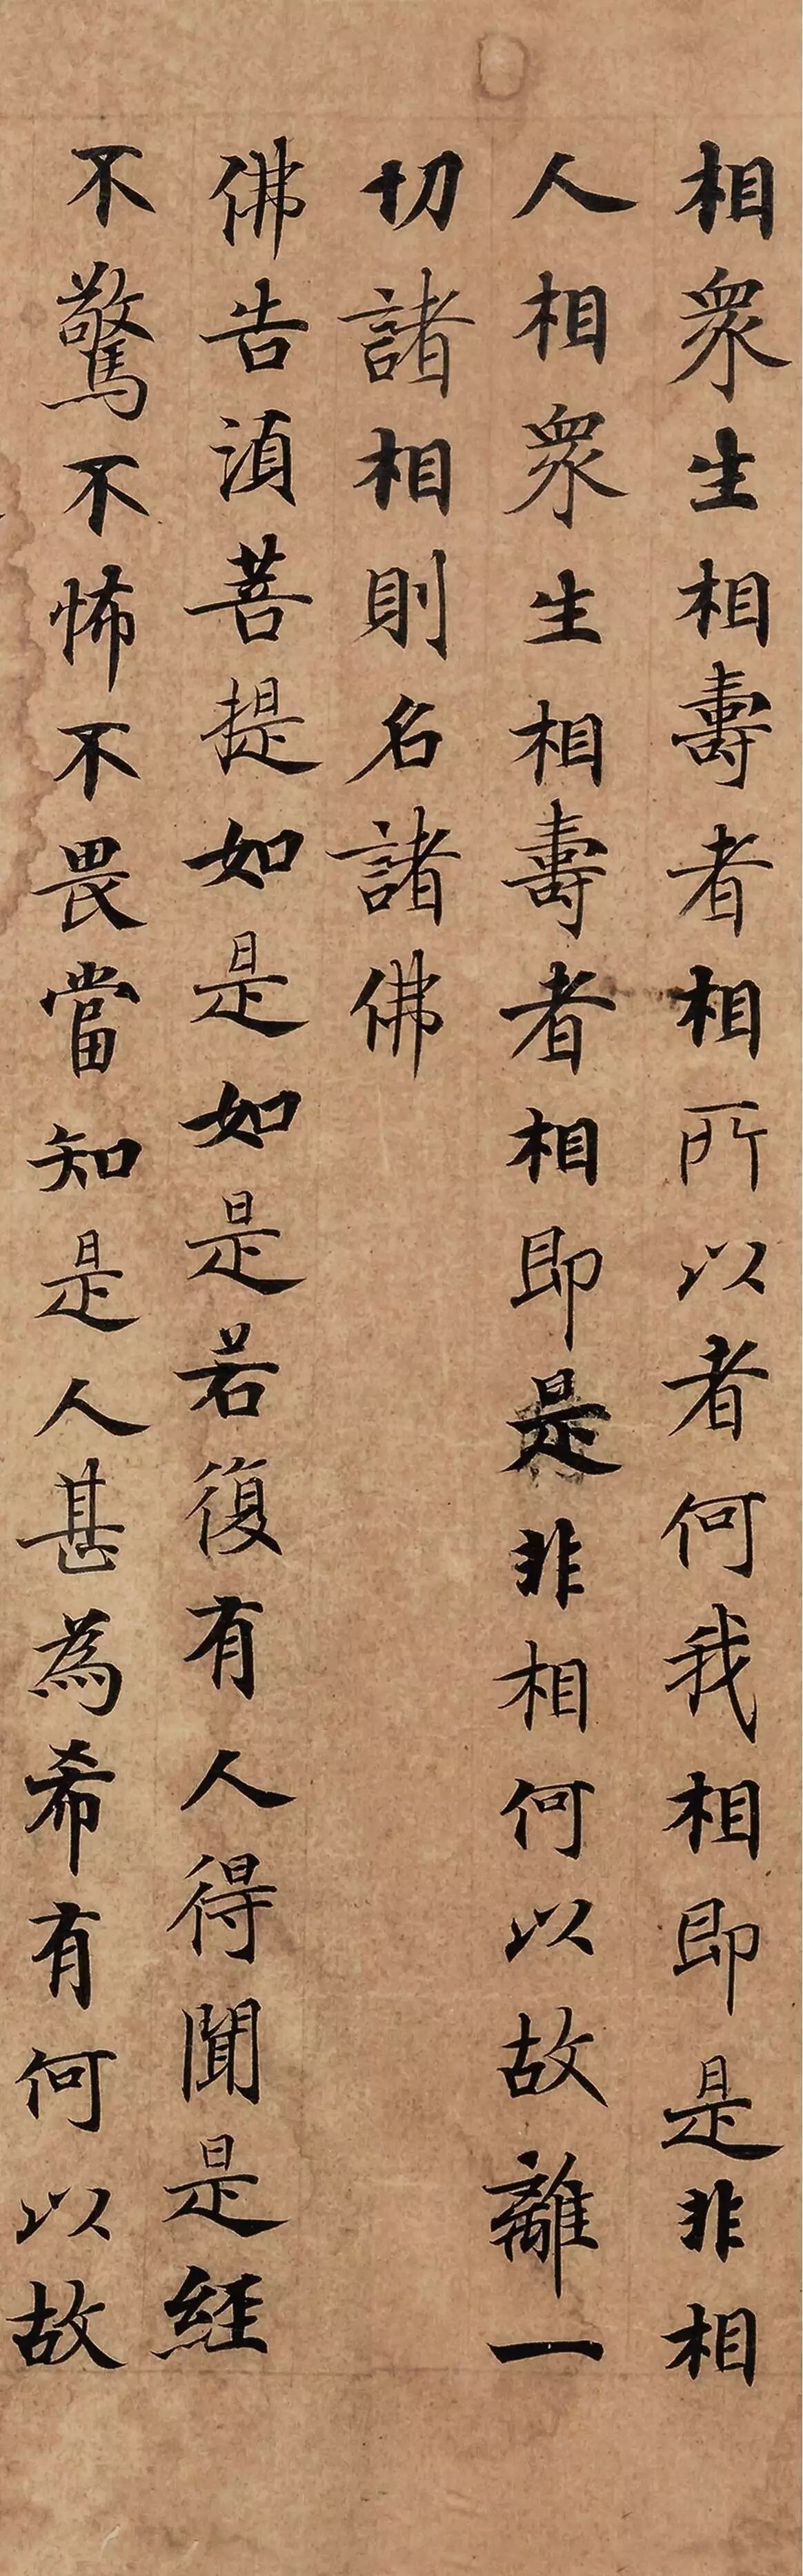 相眾生相壽者相所以者何我相即是非相
人相眾生相壽者相即是非相何以故離一
切諸相則名諸佛
佛告湏菩提如是如是若復有人得聞是經
不驚不怖不畏當知是人甚為希有何以故